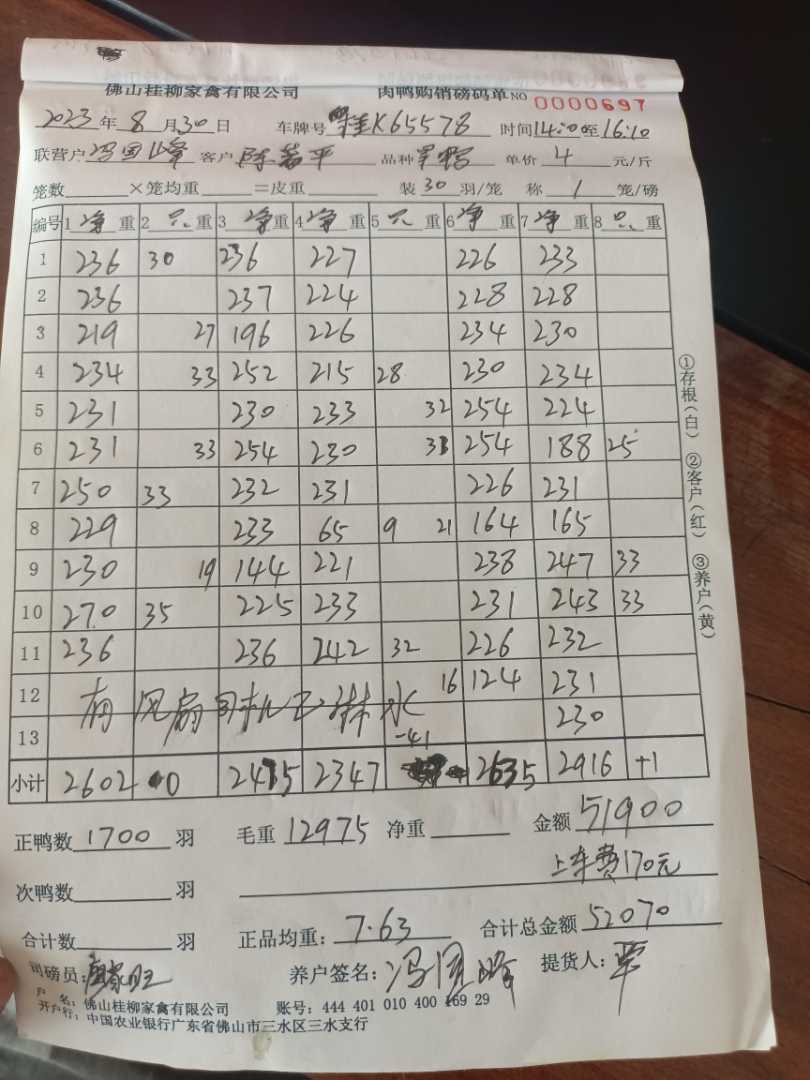 佛山桂柳家禽有限公司 肉鸭购销磅码单 NO 0000697
2023年8月30日 车牌号 桂K65578 时间14:00至16:10
联营户 冯国峰 客户 陈若平 品种 单价 4 元/斤
笼数 ×笼均重 =皮重 装30羽/笼 称1笼/磅
编号 1净重 2只重 3净重 4净重 5只重 6净重 7净重 8只重
1 236 30 236 227 226 233
2 236 237 224 228 228
3 219 27 196 226 234 230
4 234 33 252 215 28 230 234
5 231 230 233 32 254 224
6 231 33 254 230 33 254 188 25
7 250 33 232 231 226 231
8 229 233 65 9 21 164 165
9 230 19 144 221 238 247 33
10 270 35 225 233 231 243 33
11 236 236 242 32 226 232
12 有风扇司机 淋水 16 124 231
13 -41 230
小计 2602 0 2475 2347 2635 2916 +1
正鸭数1700羽 毛重12975 净重 金额51900
上车费170元
次鸭数 羽
合计数 羽 正品均重:7.63 合计总金额52070
司磅员: 养户签名:冯国峰 提货人:覃
户 名:佛山桂柳家禽有限公司 账号:444 401 010 400 169 29
开户行:中国农业银行广东省佛山市三水区三水支行
①存根(白) ②客户(红) ③养户(黄)